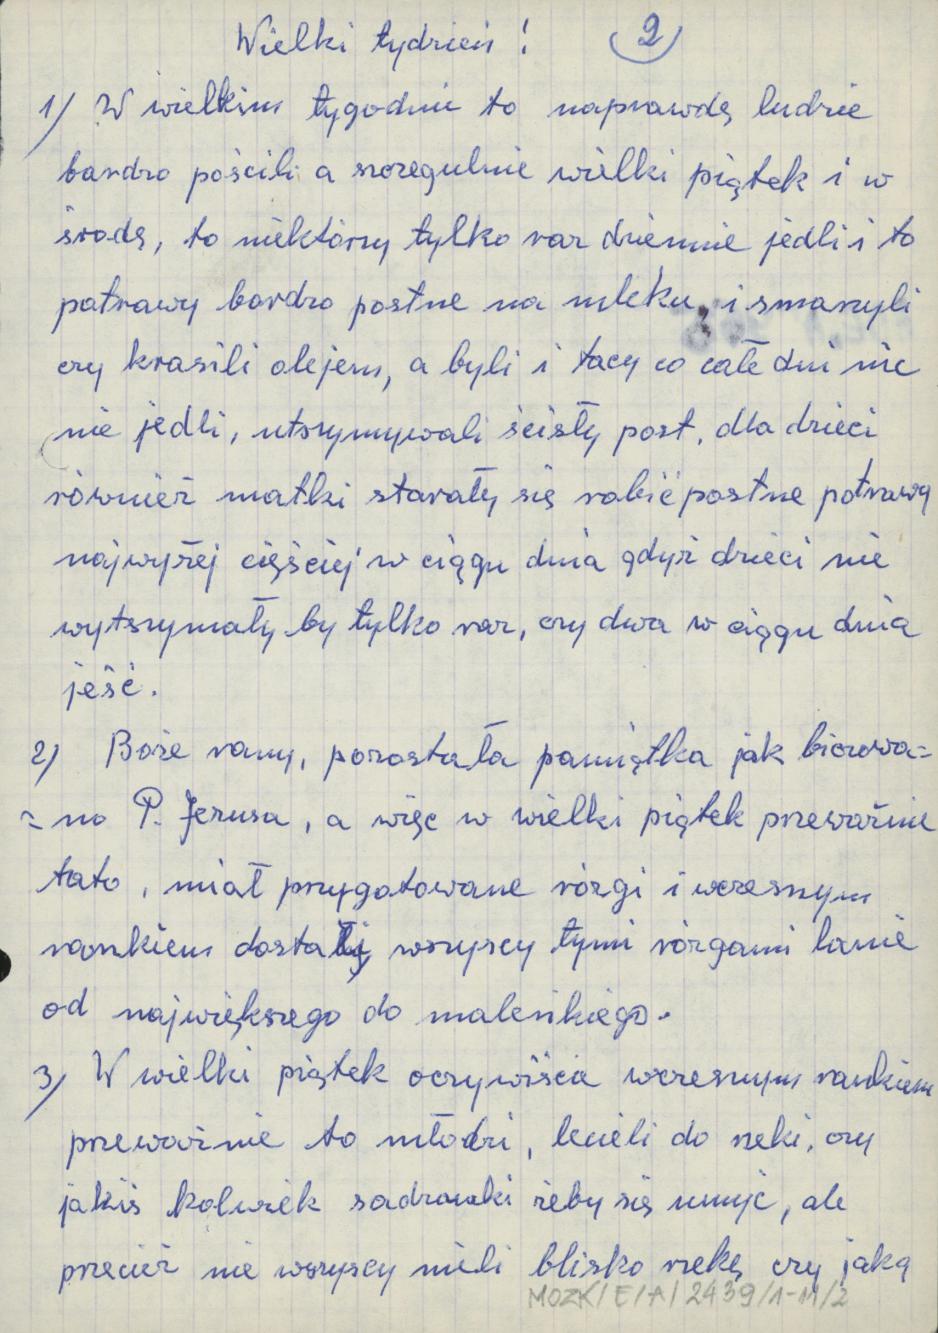 Wielki tydzień! 2
1) W wielkim tygodniu to naprawdę ludzie
bardzo pościli a szczegulnie wielki piątek i w
środę, to niektórzy tylko raz dziennie jedli i to
potrawy bardzo postne na mleku, i smarzyli
czy krasili olejem, a byli i tacy co całe dni nic
nie jedli, utrzymywali ścisły post, dla dzieci
również matki starały się robić postne potrawy
najwyżej cięściej w ciągu dnia gdyż dzieci nie
wytrzymały by tylko raz, czy dwa w ciągu dnia
jeść.
2) Boże rany, pozostała pamiątka jak biczowa=
=no P. Jezusa, a więc w wielki piątek przeważnie
tato, miał przygotowane rózgi i wczesnym
rankiem dostali wszyscy tymi rózgami lanie
od największego do maleńkiego.
3) W wielki piątek oczywiścia wczesnym rankiem
przeważnie to młodzi, lecieli do rzeki, czy
jakiś kolwiek sadzawki żeby się umyć, ale
przecież nie wszyscy mieli blisko rzekę czy jaką
MOZK/E/A/2439/1-11/2